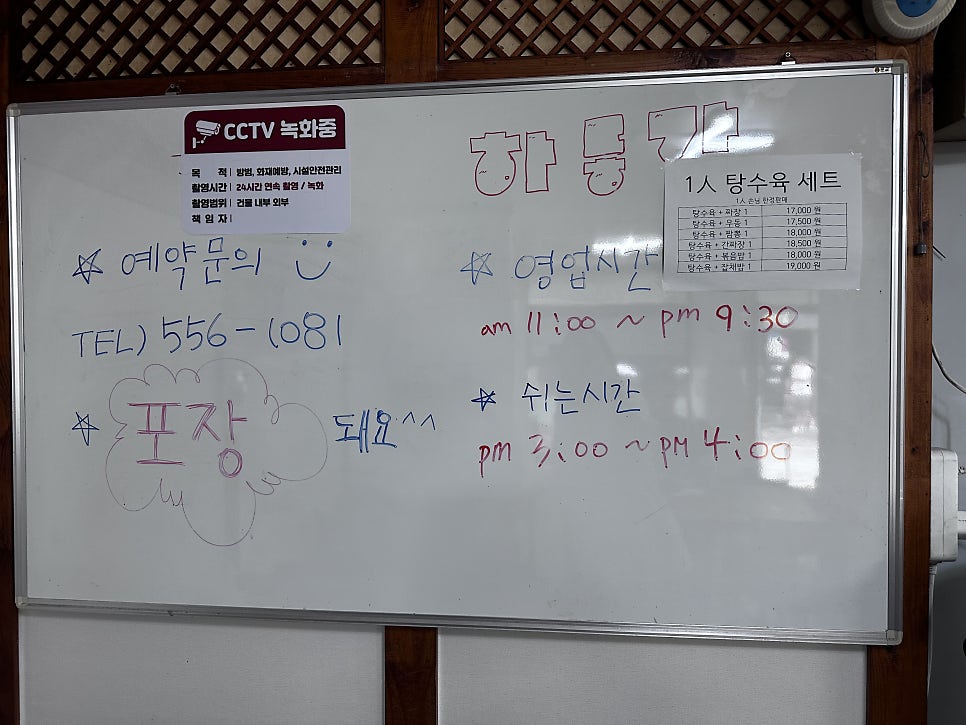 CCTV 녹화중
목 적 | 방범, 화재예방, 시설안전관리
촬영시간 | 24시간 연속 촬영 / 녹화
촬영범위 | 건물 내부 외부
책 임 자 |
☆ 예약문의
TEL) 556-1081
☆ 포장 돼요^^
1人 탕수육 세트
1人 손님 한정판매
탕수육 + 짜장 1 17,000 원
탕수육 + 우동 1 17,500 원
탕수육 + 짬뽕 1 18,000 원
탕수육 + 간짜장 1 18,500 원
탕수육 + 볶음밥 1 18,000 원
탕수육 + 잡채밥 1 19,000 원
☆ 영업시간
am 11:00 ~ pm 9:30
☆ 쉬는시간
pm 3:00 ~ pM 4:00